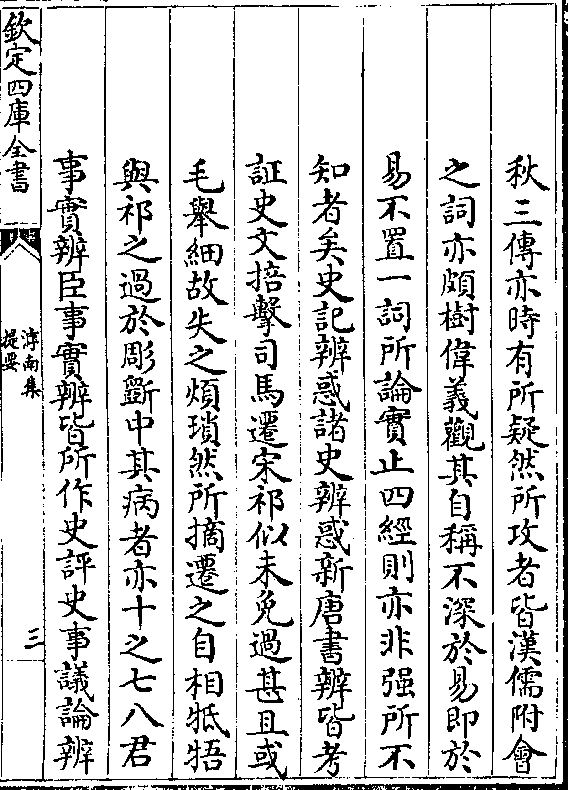 秋三傳亦時有所疑然所攻者皆漢儒附會
之詞亦頗樹偉義觀其自稱不深於易即於
易不置一詞所論實止四經則亦非强所不
知者矣史記辨惑諸史辨惑新唐書辨皆考
証史文掊擊司馬遷宋祁似未免過甚且或
毛舉細故失之煩瑣然所摘遷之自相牴牾
與祁之過於彫斵中其病者亦十之七八君
事實辨臣事實辨皆所作史評史事議論辨
欽定四庫全書
滹南集
提要
三